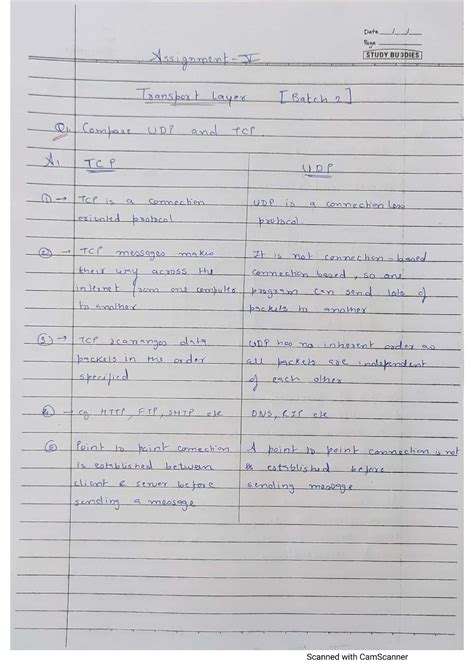 Date __/__/__
Page
STUDY BUDDIES
Assignment - V
Transport Layer [Batch 2]
Q. Compare UDP and TCP.
A. TCP UDP
① → TCP is a connection UDP is a connection less
oriented protocol protocol.
② → TCP messages makes It is not connection-based
their way across the connection based, so one
internet from one computer program can send lots of
to another packets to another
③ → TCP rearranges data UDP has no inherent order as
packets in the order all packets are independent
specified of each other
④ → eg HTTP, FTP, SMTP etc DNS, RIP etc
⑤ Point to point connection A point to point connection is not
is established between established before
client & server before sending message
sending a message
Scanned with CamScanner